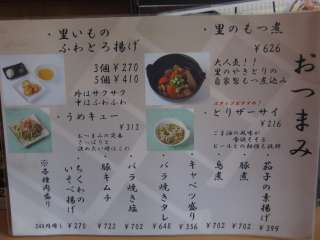 おつまみ
・里のもつ煮
¥626
大人気!!
里のやきとりの
自家製もつ煮込み
・里いもの
ふわとろ揚げ
3個 ¥270
5個 ¥410
外はサクサク
中はふわふわ
・とりザーサイ
¥216
ごま油の風味が
ビールとの相性も抜群
・うめキュー
¥313
おつまみの定番
さっぱりと
・茄子の素揚げ ¥399
・豚煮 ¥702
・鳥煮 ¥702
・キャベツ盛り ¥356
・バラ焼きタレ ¥648
・バラ焼き塩 ¥702
・豚キムチ ¥722
・ちくわのいそべ揚げ ¥270
※各種肉盛り